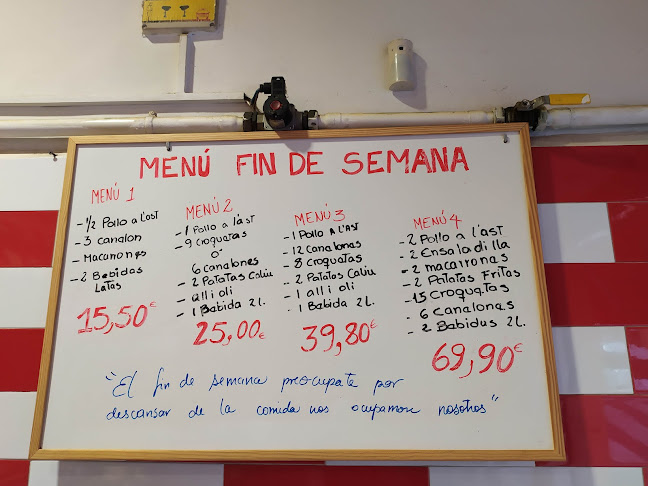 MENÚ FIN DE SEMANA
MENÚ 1
- 1/2 Pollo a l'ast
- 3 canalon
- Macarrones
- 2 Bebidas
Latas
15,50€
MENÚ 2
- 1 Pollo a l'ast
- 9 croquatas
o
6 canalones
- 2 Patatas Caliu
- alli oli
- 1 Babida 2 l.
25,00€
MENÚ 3
- 1 Pollo a l'ast
- 12 canalonas
- 8 croquatas
- 2 Patatas Caliu
- 1 alli oli
- 1 Babida 2 L.
39,80€
MENÚ 4
- 2 Pollo a l'ast
- 2 Ensaladilla
- 2 macarronas
- 2 Patatas Fritas
- 15 Croquatas
- 6 Canalonas
- 2 Babidas 2 L.
69,90€
"El fin de semana preocupate por
descansar de la comida nos ocupamon nosotros"